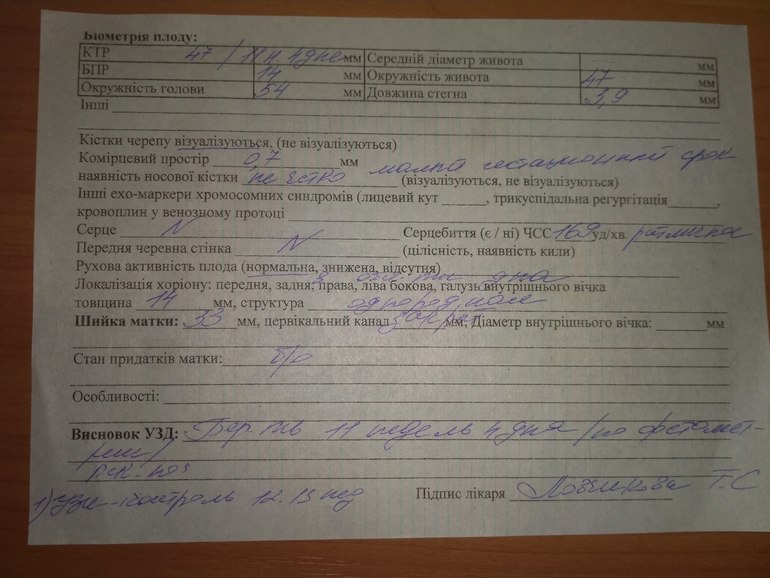 Біометрія плоду:
КТР 47 / 11 н 4 дне мм Середній діаметр живота мм
БПР 14 мм Окружність живота 47 мм
Окружність голови 54 мм Довжина стегна 3,9 мм
Інші
Кістки черепу візуалізуються, (не візуалізуються)
Комірцевий простір 0,7 мм малый гестационный срок
наявність носової кістки не четко (візуалізуються, не візуалізуються)
Інші ехо-маркери хромосомних синдромів (лицевий кут , трикуспідальна регургітація ,
кровоплин у венозному протоці
Серце N Серцебиття (є / ні) ЧСС 169 уд/хв. ритмичное
Передня черевна стінка N (цілісність, наявність кили)
Рухова активність плода (нормальна, знижена, відсутня)
Локалізація хоріону: передня, задня, права, ліва бокова, галузь внутрішнього вічка дна
товщина 14 мм, структура однородная
Шийка матки: 33 мм, цервікальний канал закрыт мм, Діаметр внутрішнього вічка: мм
Стан придатків матки: б/о
Особливості:
Висновок УЗД: Бер-ть 11 недель 4 дня / по фетомет-
рии /
1) Узи-контроль 12.13 нед Підпис лікаря Т.С